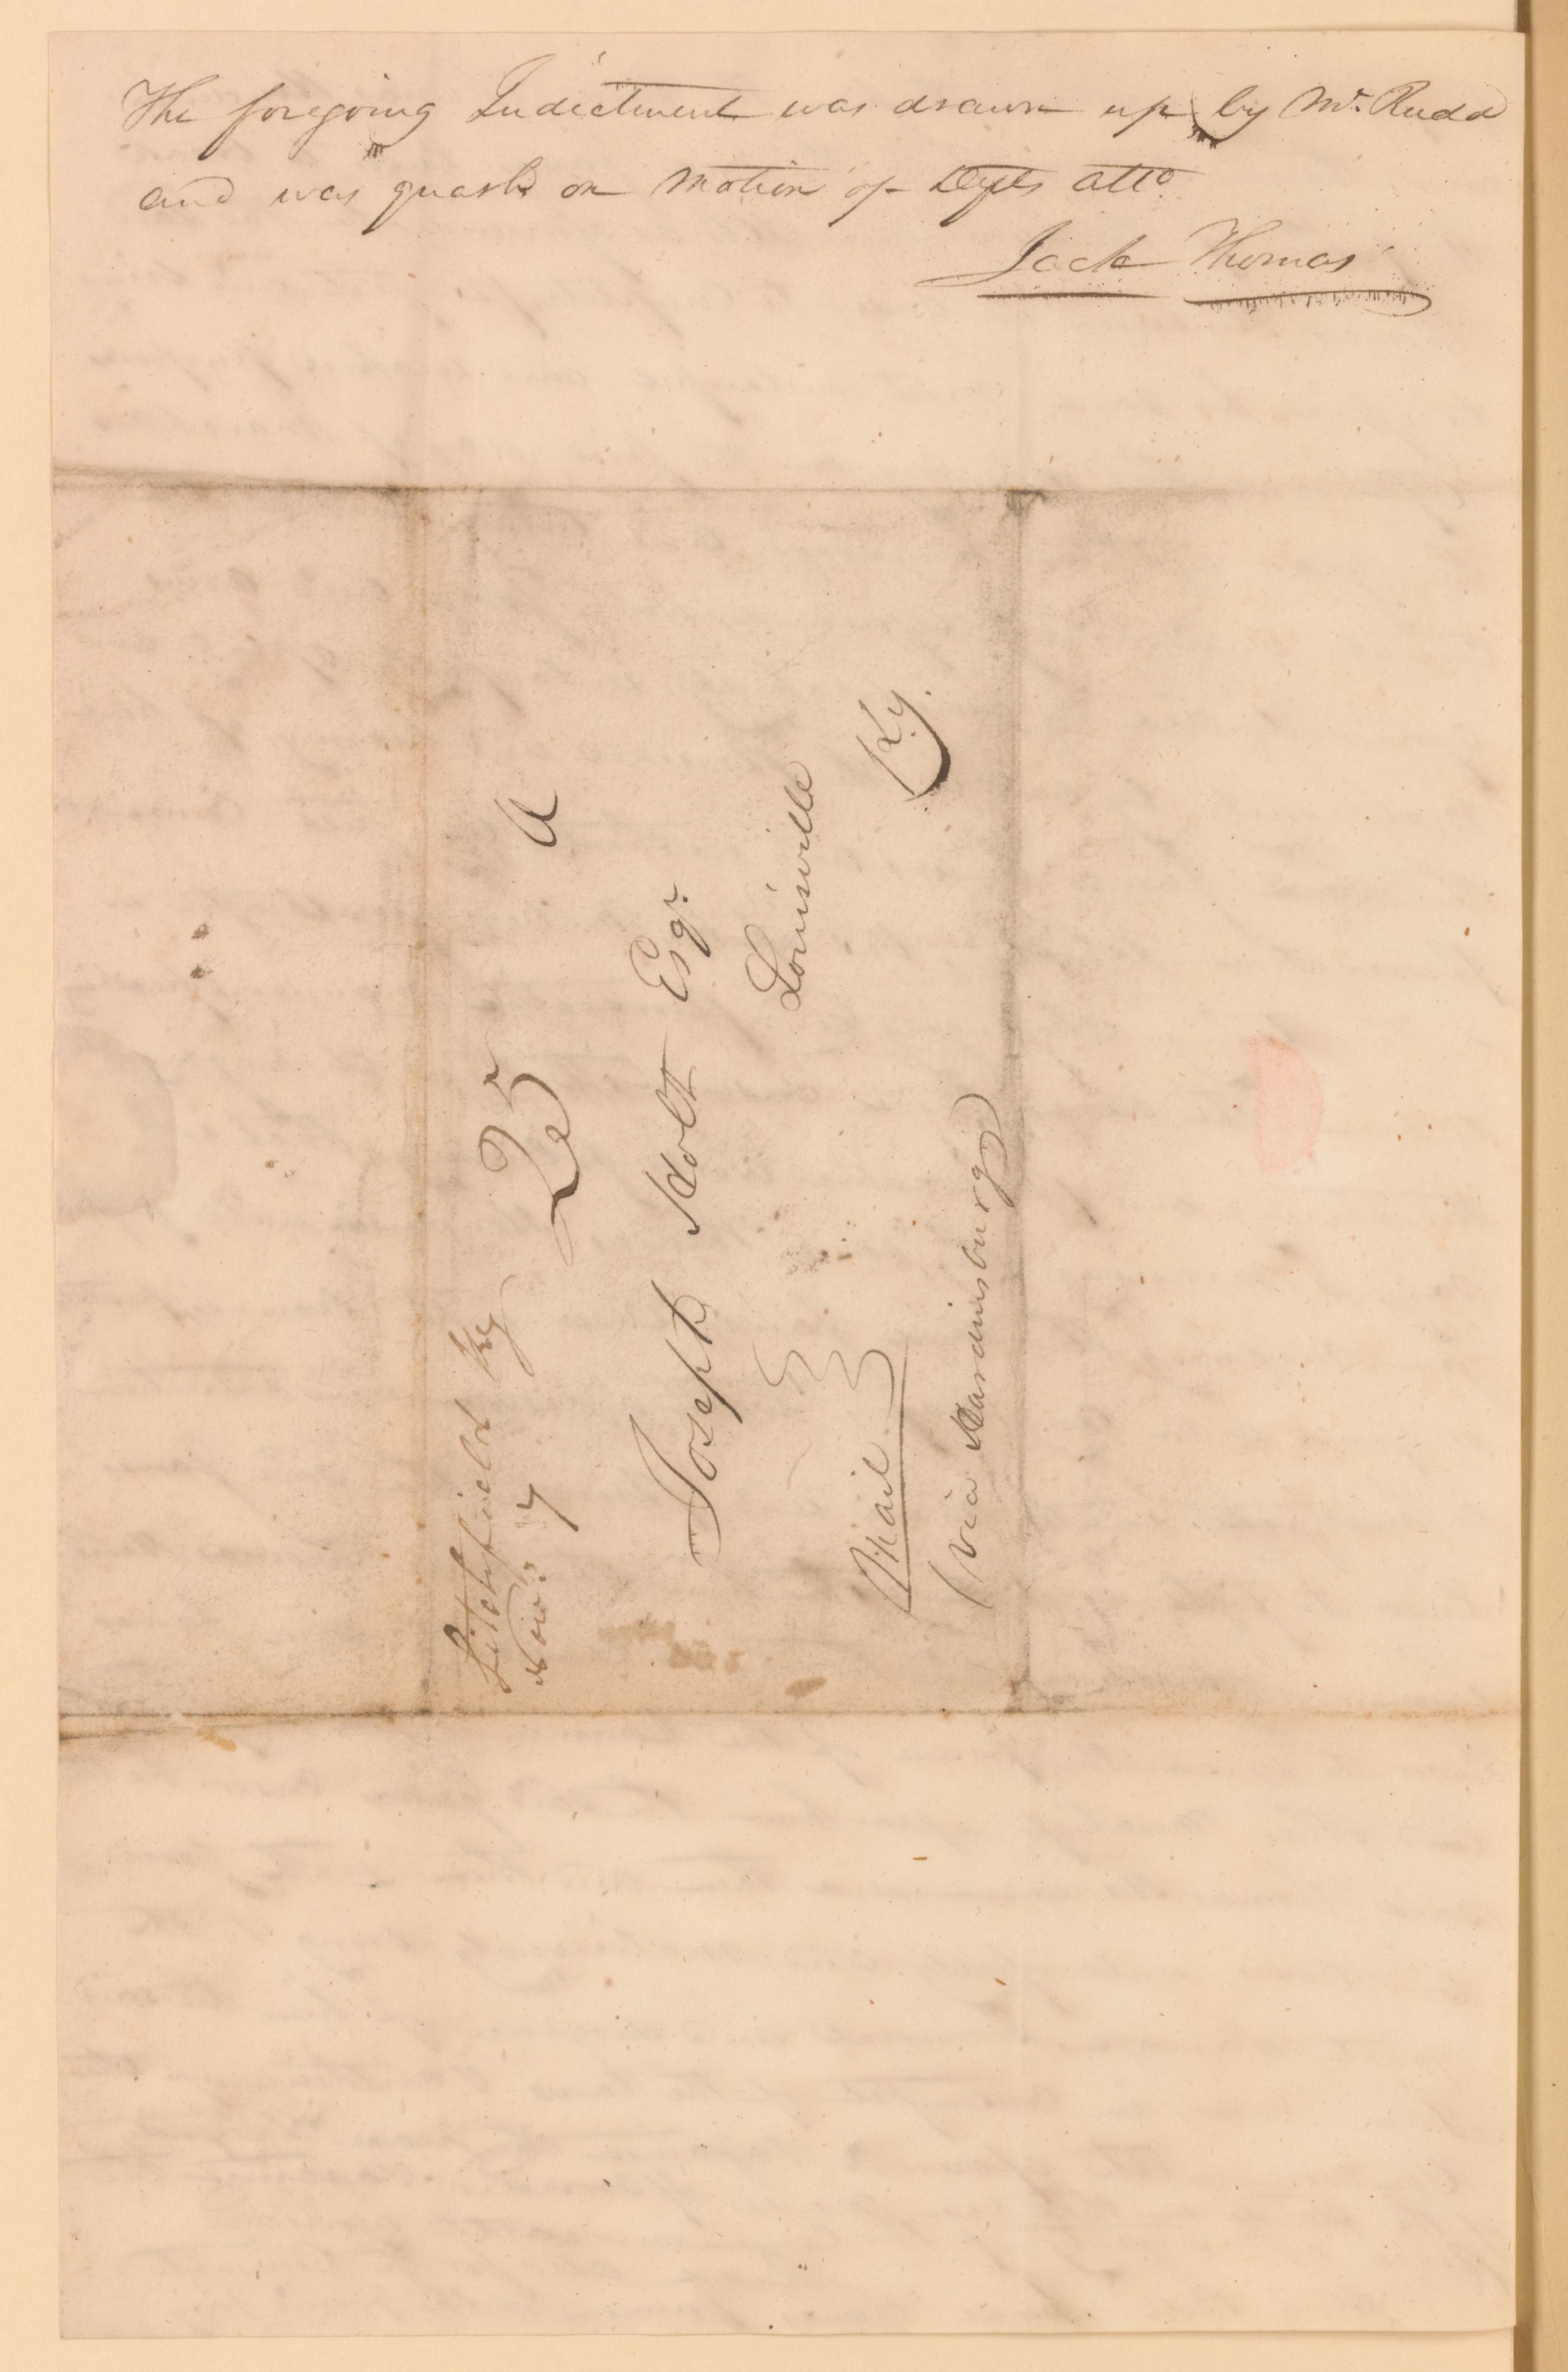 The foregoing Indictment was drawn up by Mr. Rudd
and was quashd on motion of Defts atto.
Jack Thomas
Litchfield Ky
Nov: 7
25
Joseph Holt Esqr.
Louisville
Ky.
Mail
(via Hardinsburg)